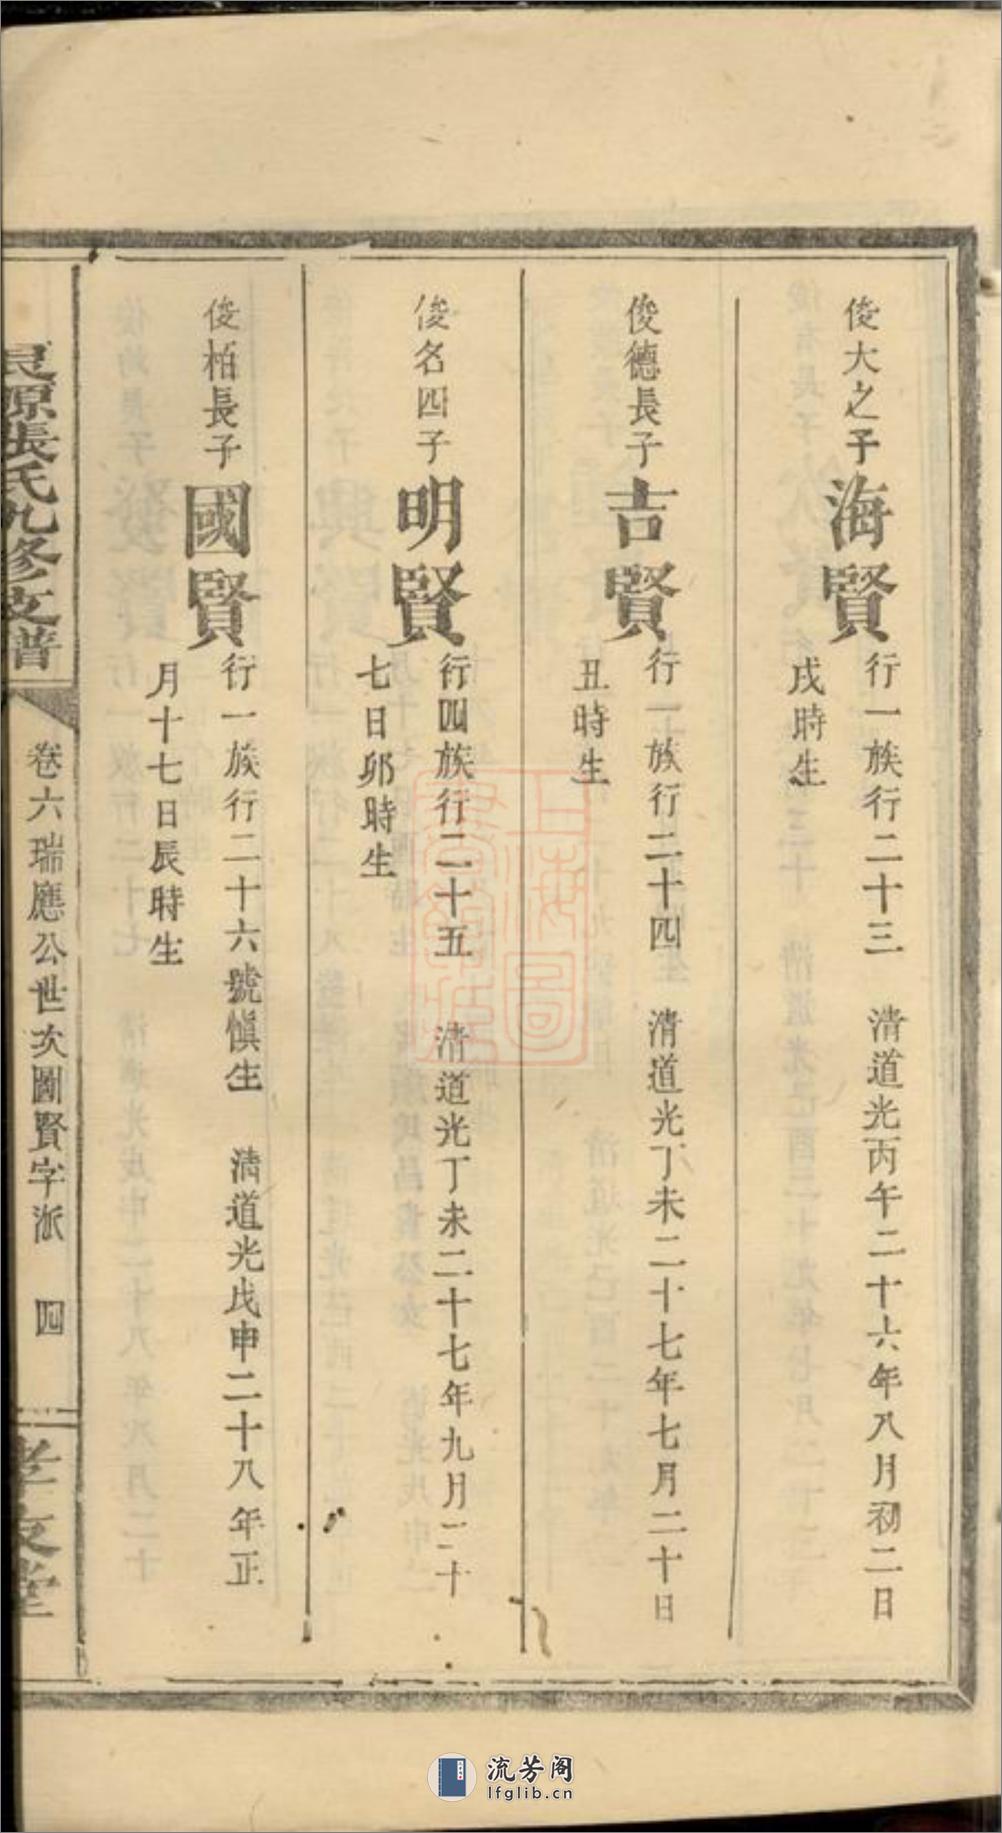 俊大之子
海賢
行一族行二十三 清道光丙午二十六年八月初二日
戌時生
俊德長子
吉賢
行一族行二十四 清道光丁未二十七年七月二十日
丑時生
俊名四子
明賢
行四族行二十五 清道光丁未二十七年九月二十
七日卯時生
俊柏長子
國賢
行一族行二十六號慎生 清道光戊申二十八年正
月十七日辰時生
張氏九修支譜
卷六瑞應公世次圖賢字派 四
孝友堂
上海圖
流芳阁
lfglib.cn